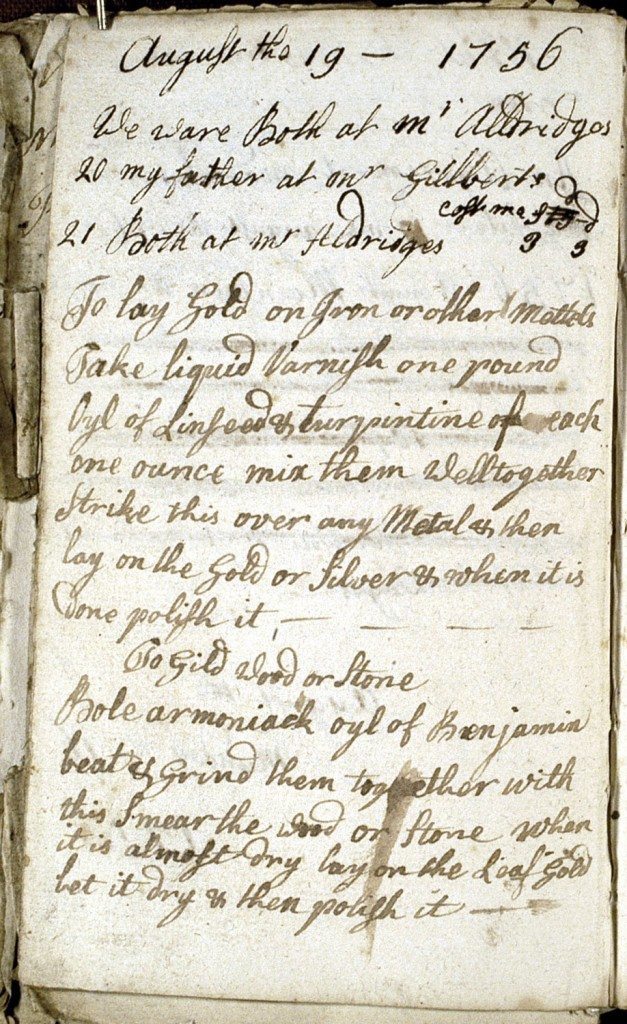 August the 19 — 1756
We ware Both at mr Alldridges
20 my father at mr Gillberts
cost me s d
21 Both at mr Aldridges 3 3
To lay Gold on Iron or other Mettels
Take liquid Varnish one pound
Oyl of Linseed & turpintine of each
one ounce mix them Well together
Strike this over any Metal & then
lay on the Gold or Silver & when it is
done polish it, — — — —
To Gild Wood or Stone
Bole armoniack oyl of Benjamin
beat & Grind them together with
this Smear the Wood or Stone when
it is almost dry lay on the Leaf Gold
let it dry & then polish it —